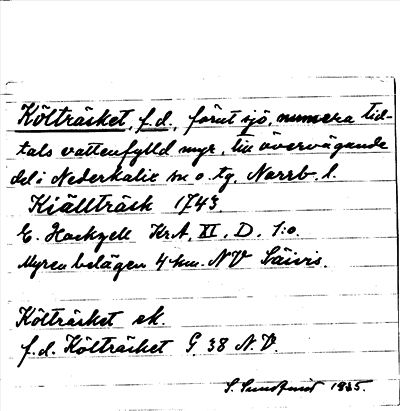 Költräsket, f.d., förut sjö, numera tid-
tals vattenfylld myr, till övervägande
del i Nederkalix sn o. tg, Norrb. l.
Kiällträsk 1743
E. Hackzell KrA, XI, D, 1:o.
Myren belägen 4 km. NV Säivis.
Költräsket ek.
f.d. Költräsket G 38 N.V.
S. Sundqvist 1935.